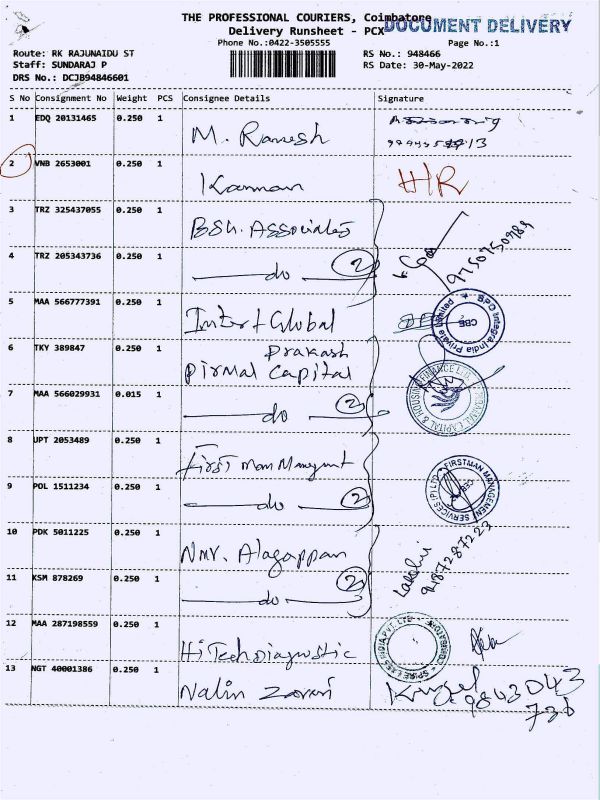 THE PROFESSIONAL COURIERS, Coimbatore
DOCUMENT DELIVERY
Delivery Runsheet - PCX
Phone No.:0422-3505555
Page No.:1
Route: RK RAJUNAIDU ST
RS No.: 948466
Staff: SUNDARAJ P
RS Date: 30-May-2022
DRS No.: DCJB94846601
S No Consignment No Weight PCS Consignee Details Signature
1 EDQ 20131465 0.250 1
M. Ramesh
2 VNB 2653001 0.250 1
Kannan HR
3 TRZ 325437055 0.250 1
BSH. Associates
9750750989
4 TRZ 205343736 0.250 1
do 2
5 MAA 566777391 0.250 1
Global
BPO Integra India Private Limited CBE
6 TKY 389847 0.250 1
Prakash
Pirmal Capital
7 MAA 566029931 0.015 1
do 2
CAPITAL & HOUSING FINANCE
8 UPT 2053489 0.250 1
First Man
9 POL 1511234 0.250 1
do 2
FIRSTMAN MANAGEMENT SERVICES (P) LTD CBE
10 PDK 5011225 0.250 1
Alagappan
9487287223
11 KSM 878269 0.250 1
do 2
12 MAA 287198559 0.250 1
HiTech Diagnostic
13 NGT 40001386 0.250 1
Nalin Zaveri
9843043
736